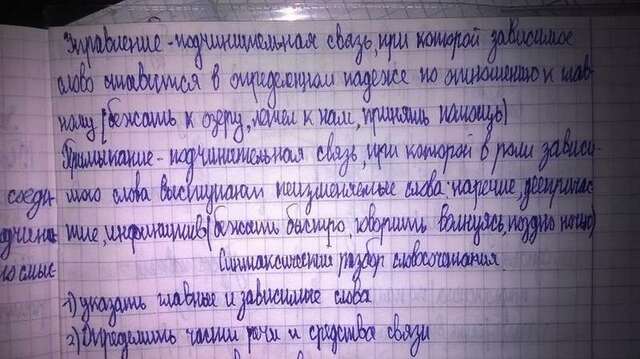 Управление - подчинительная связь, при которой зависимое
слово ставится в определенном падеже по отношению к глав-
ному (бежать к озеру, летел к нам, принять помощь)
Примыкание - подчинительная связь, при которой в роли зависи-
соеди мого слова выступают неизменяемые слова: наречие, дееприча-
дчине тие, инфинитив (бежать быстро, говорить волнуясь, поздно ночью)
смыс Синтаксический разбор словосочетания.
1) указать главные и зависимые слова
2) Определить части речи и средства связи